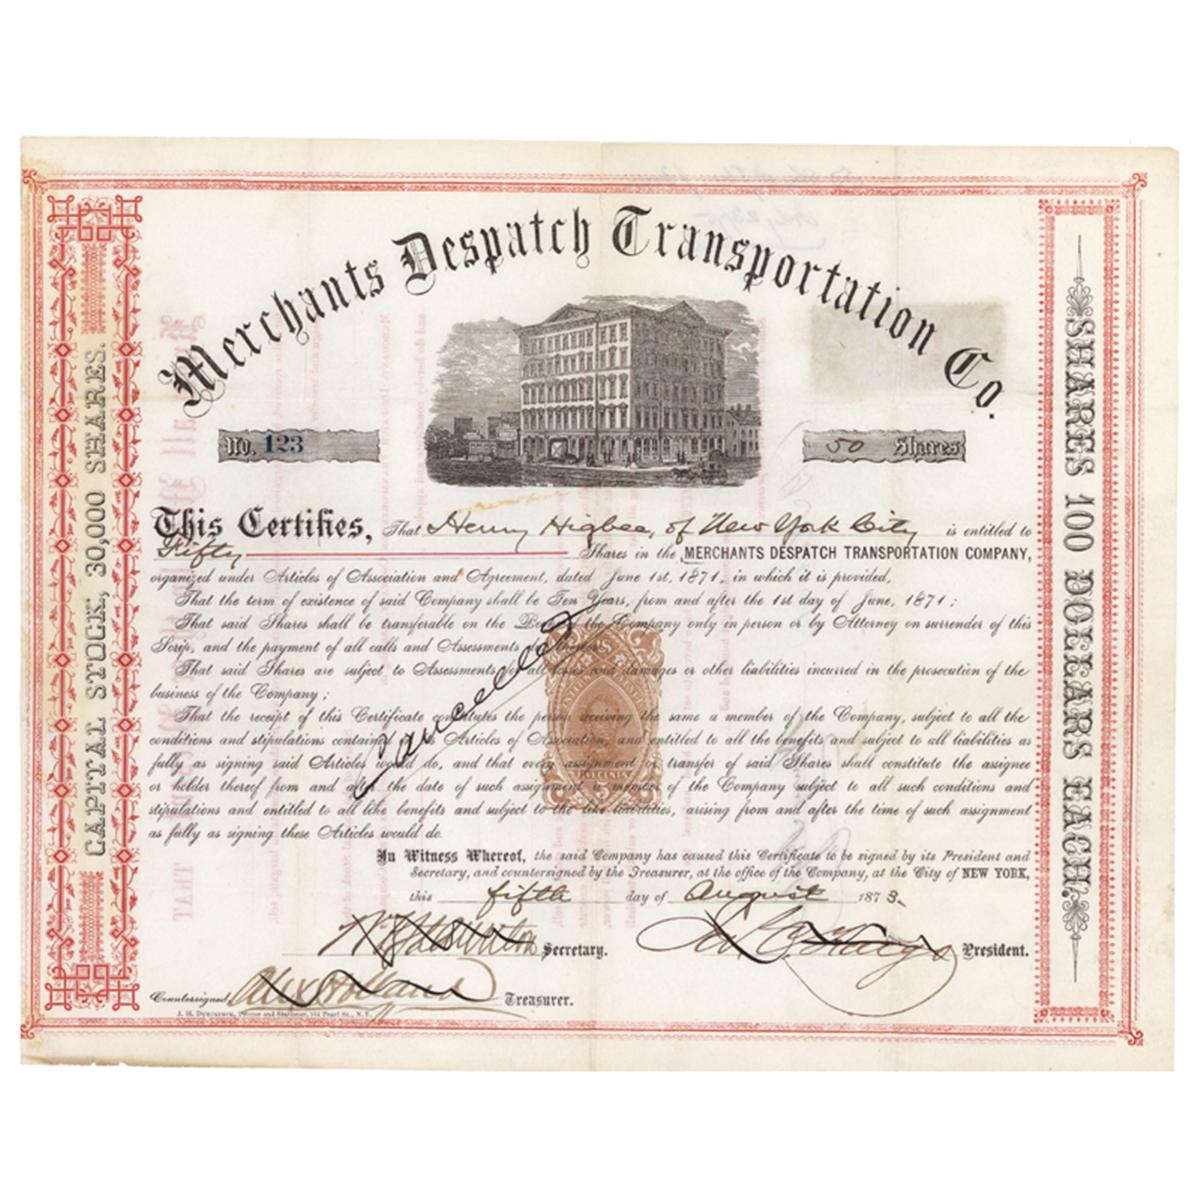 Merchants Despatch Transportation Co.
No. 123
50 Shares
CAPITAL STOCK, 30,000 SHARES.
SHARES 100 DOLLARS EACH.
This Certifies, That Henry Higbee, of New York City is entitled to
Fifty Shares in the MERCHANTS DESPATCH TRANSPORTATION COMPANY,
organized under Articles of Association and Agreement, dated June 1st, 1871, in which it is provided,
That the term of existence of said Company shall be Ten Years, from and after the 1st day of June, 1871;
That said Shares shall be transferable on the Books of the Company only in person or by Attorney on surrender of this
Scrip, and the payment of all calls and Assessments thereon;
That said Shares are subject to Assessments for all losses and damages or other liabilities incurred in the prosecution of the
business of the Company;
That the receipt of this Certificate constitutes the person receiving the same a member of the Company, subject to all the
conditions and stipulations contained in its Articles of Association, and entitled to all the benefits and subject to all liabilities as
fully as signing said Articles would do, and that every assignment or transfer of said Shares shall constitute the assignee
or holder thereof from and after the date of such assignment a member of the Company subject to all such conditions and
stipulations and entitled to all like benefits and subject to the like liabilities, arising from and after the time of such assignment
as fully as signing these Articles would do.
Cancelled
In Witness Whereof, the said Company has caused this Certificate to be signed by its President and
Secretary, and countersigned by the Treasurer, at the office of the Company, at the City of NEW YORK,
this fifth day of August 1873.
Secretary.
President.
Countersigned Alex Holland Treasurer.
Printer and Stationer, Pearl St., N.Y.